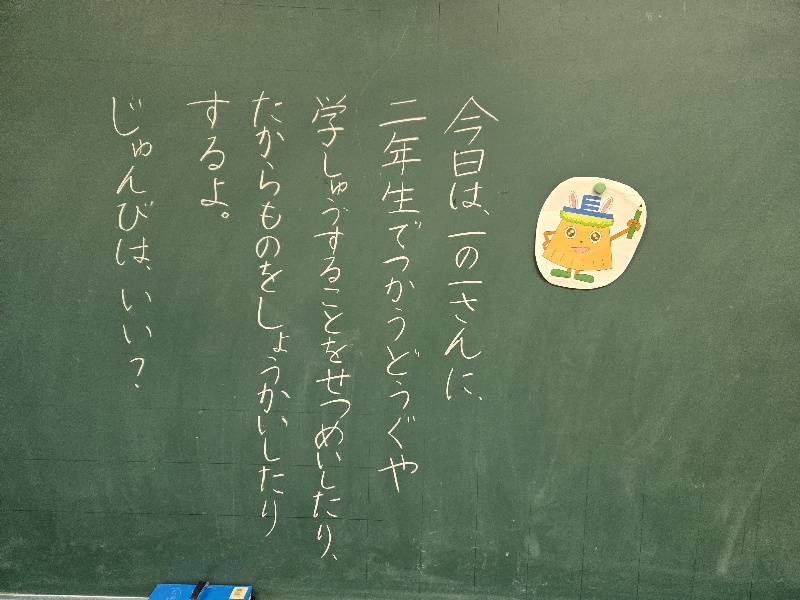 今日は、一の一さんに、
二年生でつかうどうぐや
学しゅうすることをせつめいしたり、
たからものをしょうかいしたり
するよ。
じゅんびは、いい？